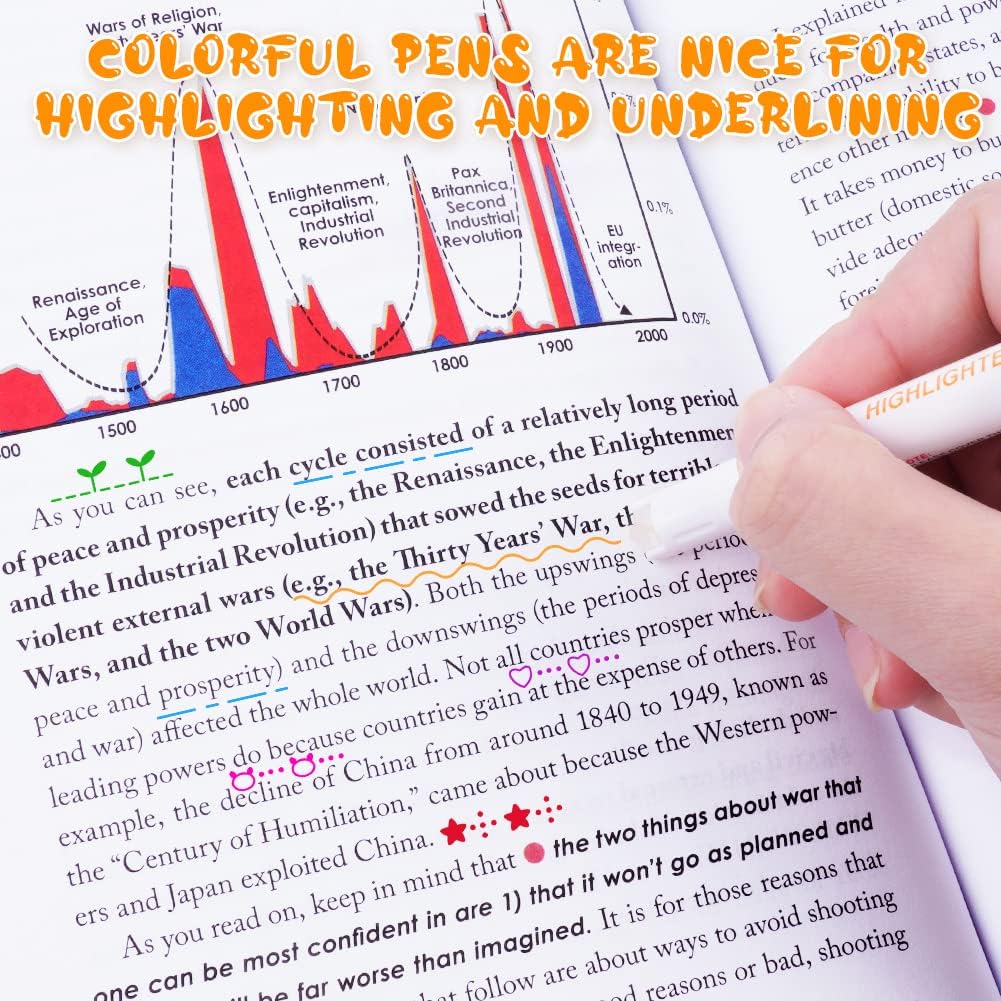 COLORFUL PENS ARE NICE FOR
HIGHLIGHTING AND UNDERLINING
Wars of Religion,
Years' War
Enlightenment,
capitalism,
Industrial
Revolution
Pax
Britannica,
Second
Industrial
Revolution
EU
integr-
ation
Renaissance,
Age of
Exploration
0.1%
0.0%
00
1500
1600
1700
1800
1900
2000
As you can see, each cycle consisted of a relatively long period
of peace and prosperity (e.g., the Renaissance, the Enlightenmen
and the Industrial Revolution) that sowed the seeds for terribl
violent external wars (e.g., the Thirty Years' War, th
Wars, and the two World Wars). Both the upswings
peace and prosperity) and the downswings (the periods of depres
and war) affected the whole world. Not all countries prosper whe
leading powers do because countries gain at the expense of others. For
example, the decline of China from around 1840 to 1949, known as
the “Century of Humiliation,” came about because the Western pow-
ers and Japan exploited China.
As you read on, keep in mind that the two things about war that
one can be most confident in are 1) that it won't go as planned and
be far worse than imagined. It is for those reasons that
follow are about ways to avoid shooting
reasons or bad, shooting
explained
and pow
states, a
ability to b
ence other
It takes money to bu
butter (domestic so
vide adeq
fore
HIGHLIGHTE